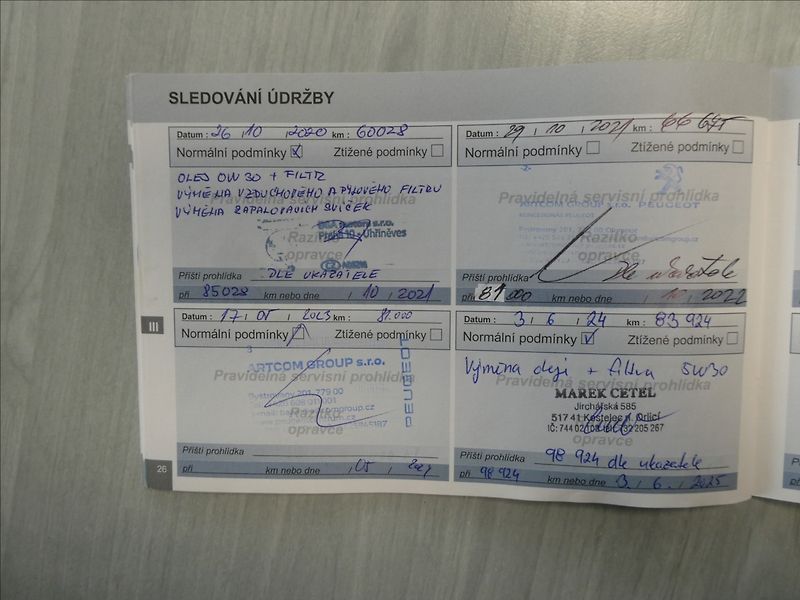 SLEDOVÁNÍ ÚDRŽBY
Datum : 26 / 10 / 2020 km : 60028
Normální podmínky Ztížené podmínky
OLEJ 0W30 + FILTR
VÝMĚNA VZDUCHOVÉHO A PYLOVÉHO FILTRU
VÝMĚNA ZAPALOVACÍCH SVÍČEK
Pravidelná servisní prohlídka
s.r.o.
Praha 10 - Uhříněves
Razítko
opravce
Příští prohlídka DLE UKAZATELE
při 85028 km nebo dne / 10 / 2021
Datum : 29 / 10 / 2021 km :
Normální podmínky Ztížené podmínky
Pravidelná servisní prohlídka
ARTCOM GROUP s.r.o. PEUGEOT
Razítko
opravce
Příští prohlídka dle ukazatele
při 81 000 km nebo dne / 10 / 2022
Datum : 17 / 05 / 2023 km : 81.000
Normální podmínky Ztížené podmínky
ARTCOM GROUP s.r.o.
PEUGEOT
Pravidelná servisní prohlídka
Razítko
opravce
Příští prohlídka
při km nebo dne / 05 /
Datum : 3 / 6 / 24 km : 83 924
Normální podmínky Ztížené podmínky
Výměna oleje + filtru 5W30
Pravidelná servisní prohlídka
MAREK CETEL
Jirchářská 585
517 41 Kostelec n. Orlicí
Razítko
opravce
Příští prohlídka 98 924 dle ukazatele
při 98 924 km nebo dne 3 / 6 / 2025
III
26